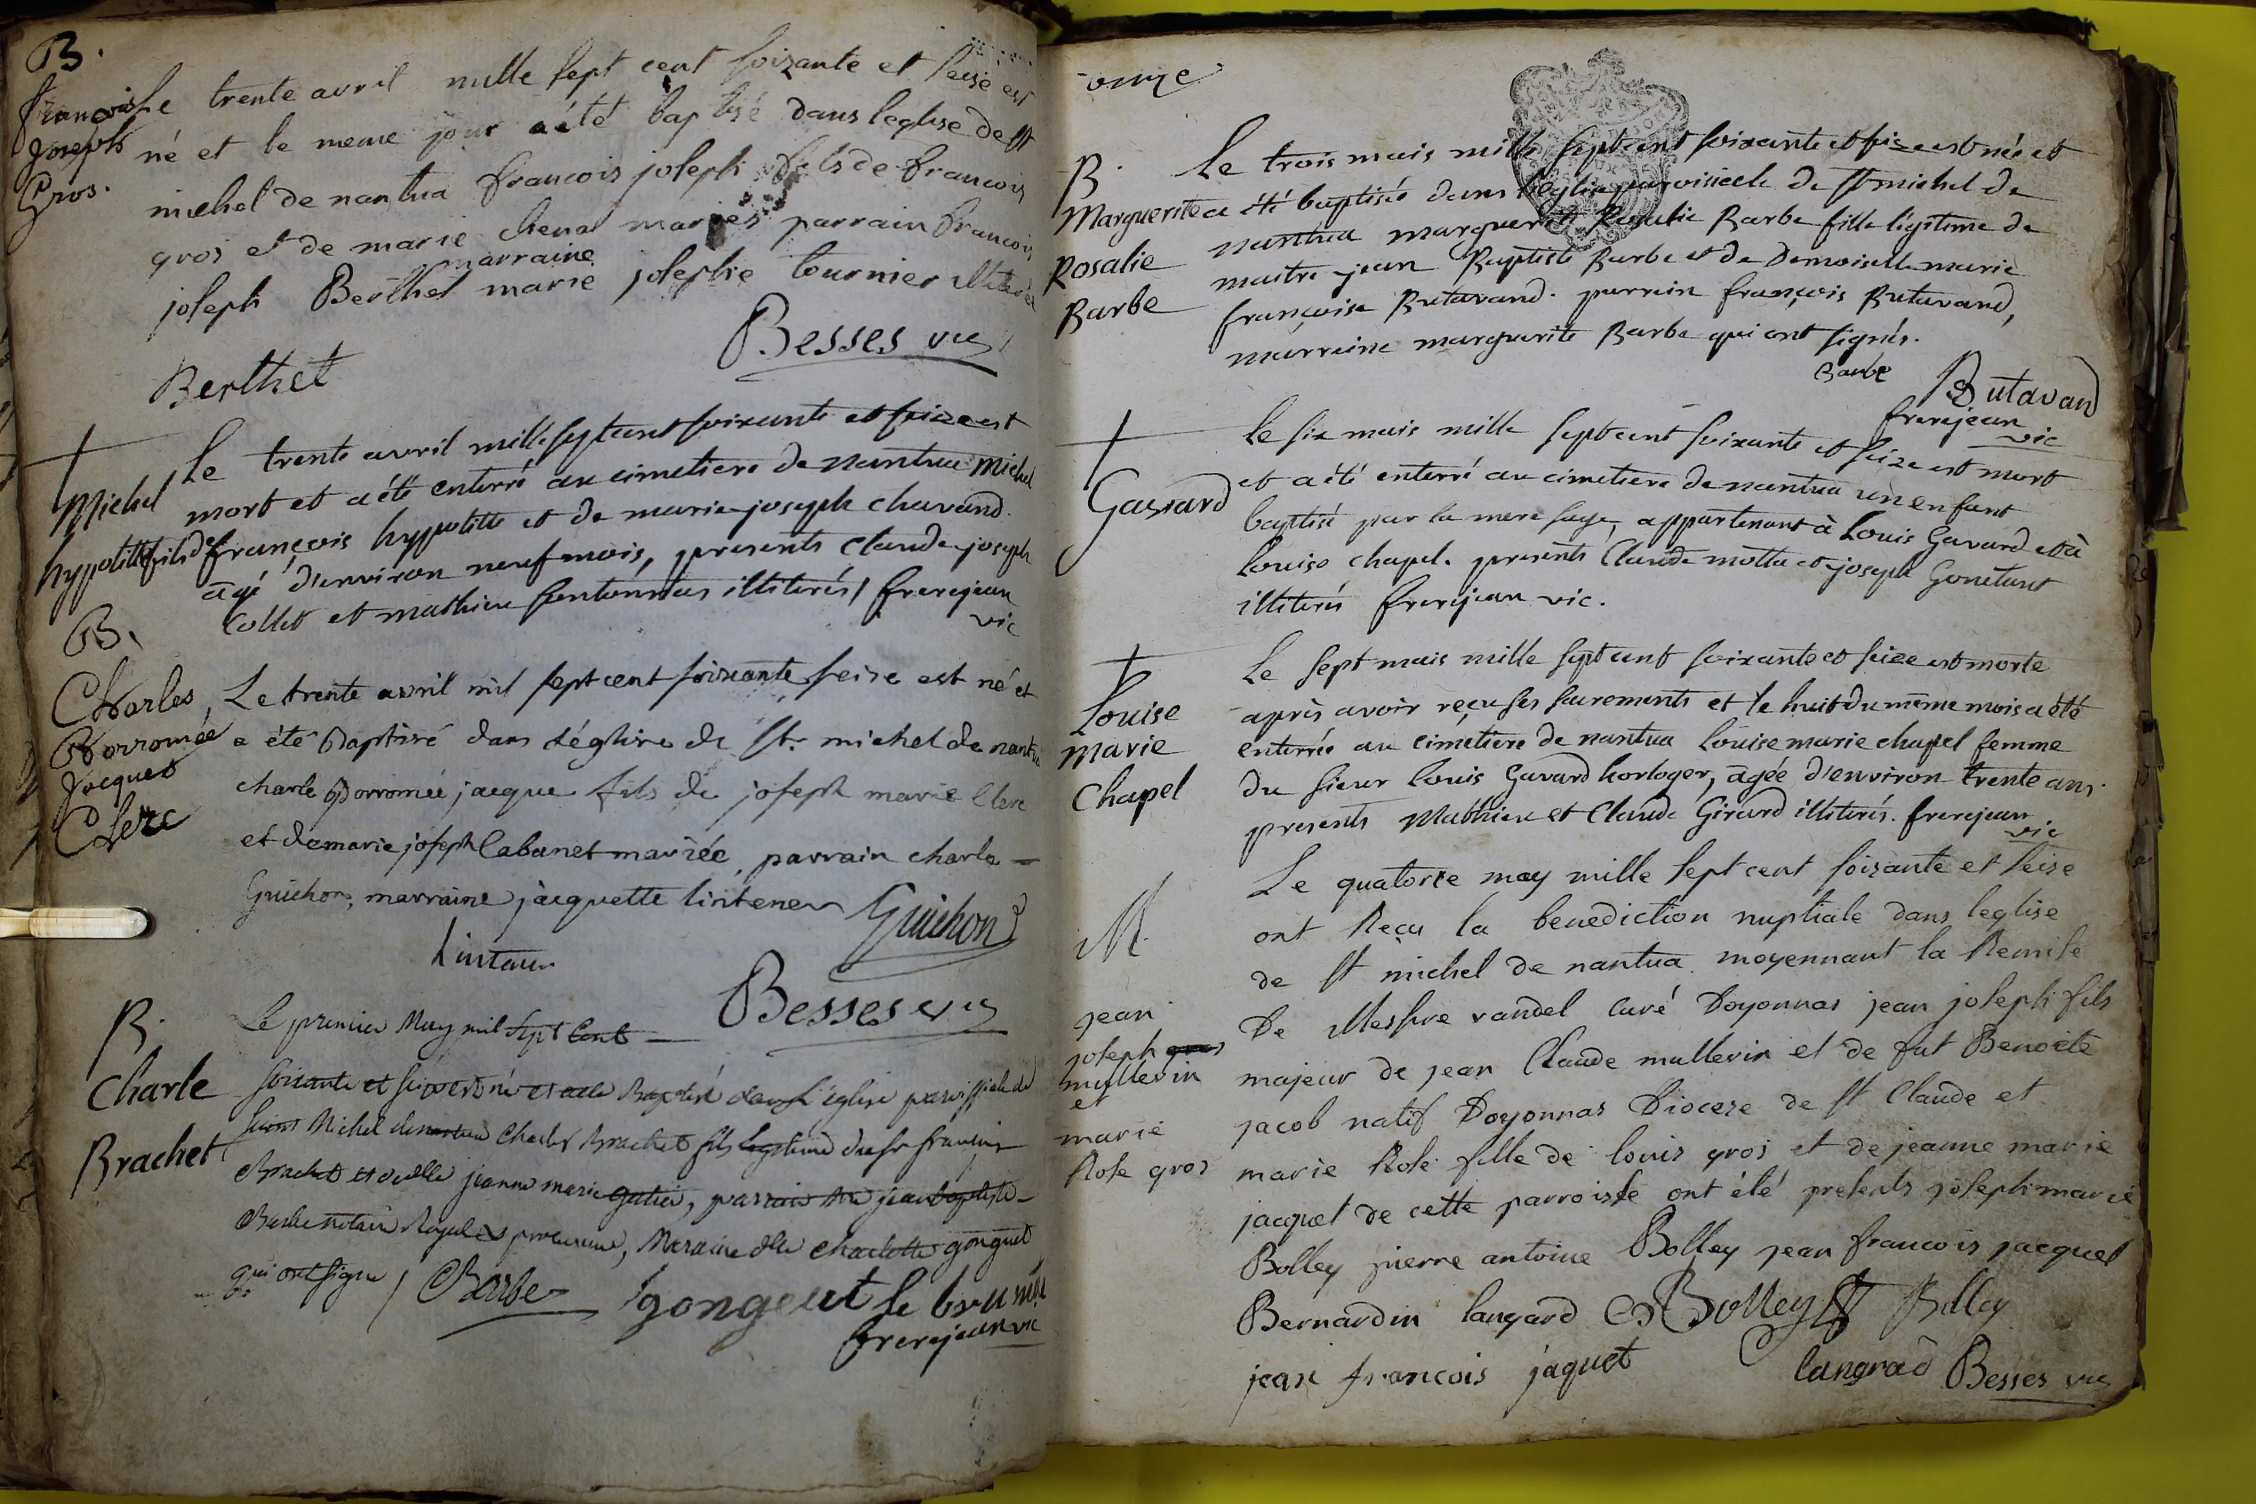 B.
francois
Joseph
Gros.
Le trente avril mille sept cent soixante et seise est
né et le meme jour a été baptisé dans leglise de st
michel de nantua francois joseph fils de francois
gros et de marie chena mariés parrain francois
marraine
joseph Berthet marie josephe tournier illiterée
Besses vic
Berthet
Michel
hypolitte
Le trente avril mille sept cent soixante et seize est
mort et a été enterré au cimetiere de nantua Michel
fils de françois hypolitte et de marie joseph chavand.
âgé d'environ neuf mois, presents claude joseph
Collet et mathieu illiterés / frerejean
vic
B.
Charles
Borromée
Jacques
Clerc
Le trente avril mil sept cent soixante seize est né et
a été Baptisé dans l'église de St. michel de nantua
charle Borromée jacque fils de joseph marie Clerc
et de marie joseph Cabanet mariée, parrain charle
Guichon, marraine jacquette
Guichon
Besses vic
B.
Charle
Brachet
Le premier May mil sept Cent
soixante et seize est né et a été Baptisé dans l'église paroissiale de
saint Michel de nantua Charles Brachet fils legitime du sr francois
Brachet et de dlle jeanne marie , parrain Me jean baptiste
Barbe notaire Royal et procureur, Maraine dlle charlotte gonguet
qui ont signé / Barbe gongeut le
frerejean vic
onze
B.
Marguerite
Rosalie
Barbe
Le trois mais mille sept cent soixante et seize est née et
a été baptisée dans l'eglise paroissiale de st michel de
nantua marguerite Rosalie Barbe fille légitime de
maitre jean Baptiste Barbe et de Demoiselle marie
françoise Butavand. parrain françois Butavand,
márraine marguerite Barbe qui ont signés.
Barbe Butavand
frerejean
vic
Gavard
Le six mais mille sept cent soixante et seize est mort
et a été enterré au cimetiere de nantua un enfant
baptisé par la mere sage, appartenant à Louis Gavard et à
Louise chapel. presents Claude motta et joseph Gonetant
illiterés frerejean vic.
Louise
marie
Chapel
Le sept mais mille sept cent soixante et seize est morte
après avoir reçu ses sacrements et le huit du même mois a été
enterrée au cimetiere de nantua Louise marie chapel femme
du sieur Louis Gavard horloger, âgée d'environ trente ans.
presents Mathieu et Claude Girard illiterés. frerejean
vic
M.
jean
joseph gros
mullevin
et
marie
Rose gros
Le quatorze may mille sept cent soixante et seise
ont Reçu la benediction nuptiale dans leglise
de st michel de nantua moyennant la Remise
De Messire vandel curé Doyonnas jean joseph fils
majeur de jean Claude mullevin et de fut Benoite
jacob natif Doyonnas Diocese de st Claude et
marie Rose fille de louis gros et de jeanne marie
jacquet de cette parroisse ont été presents joseph marie
Bolley pierre antoine Bolley jean francois jacquet
Bernardin langard Bolley Bolley
jean francois jaquet langrad Besses vic